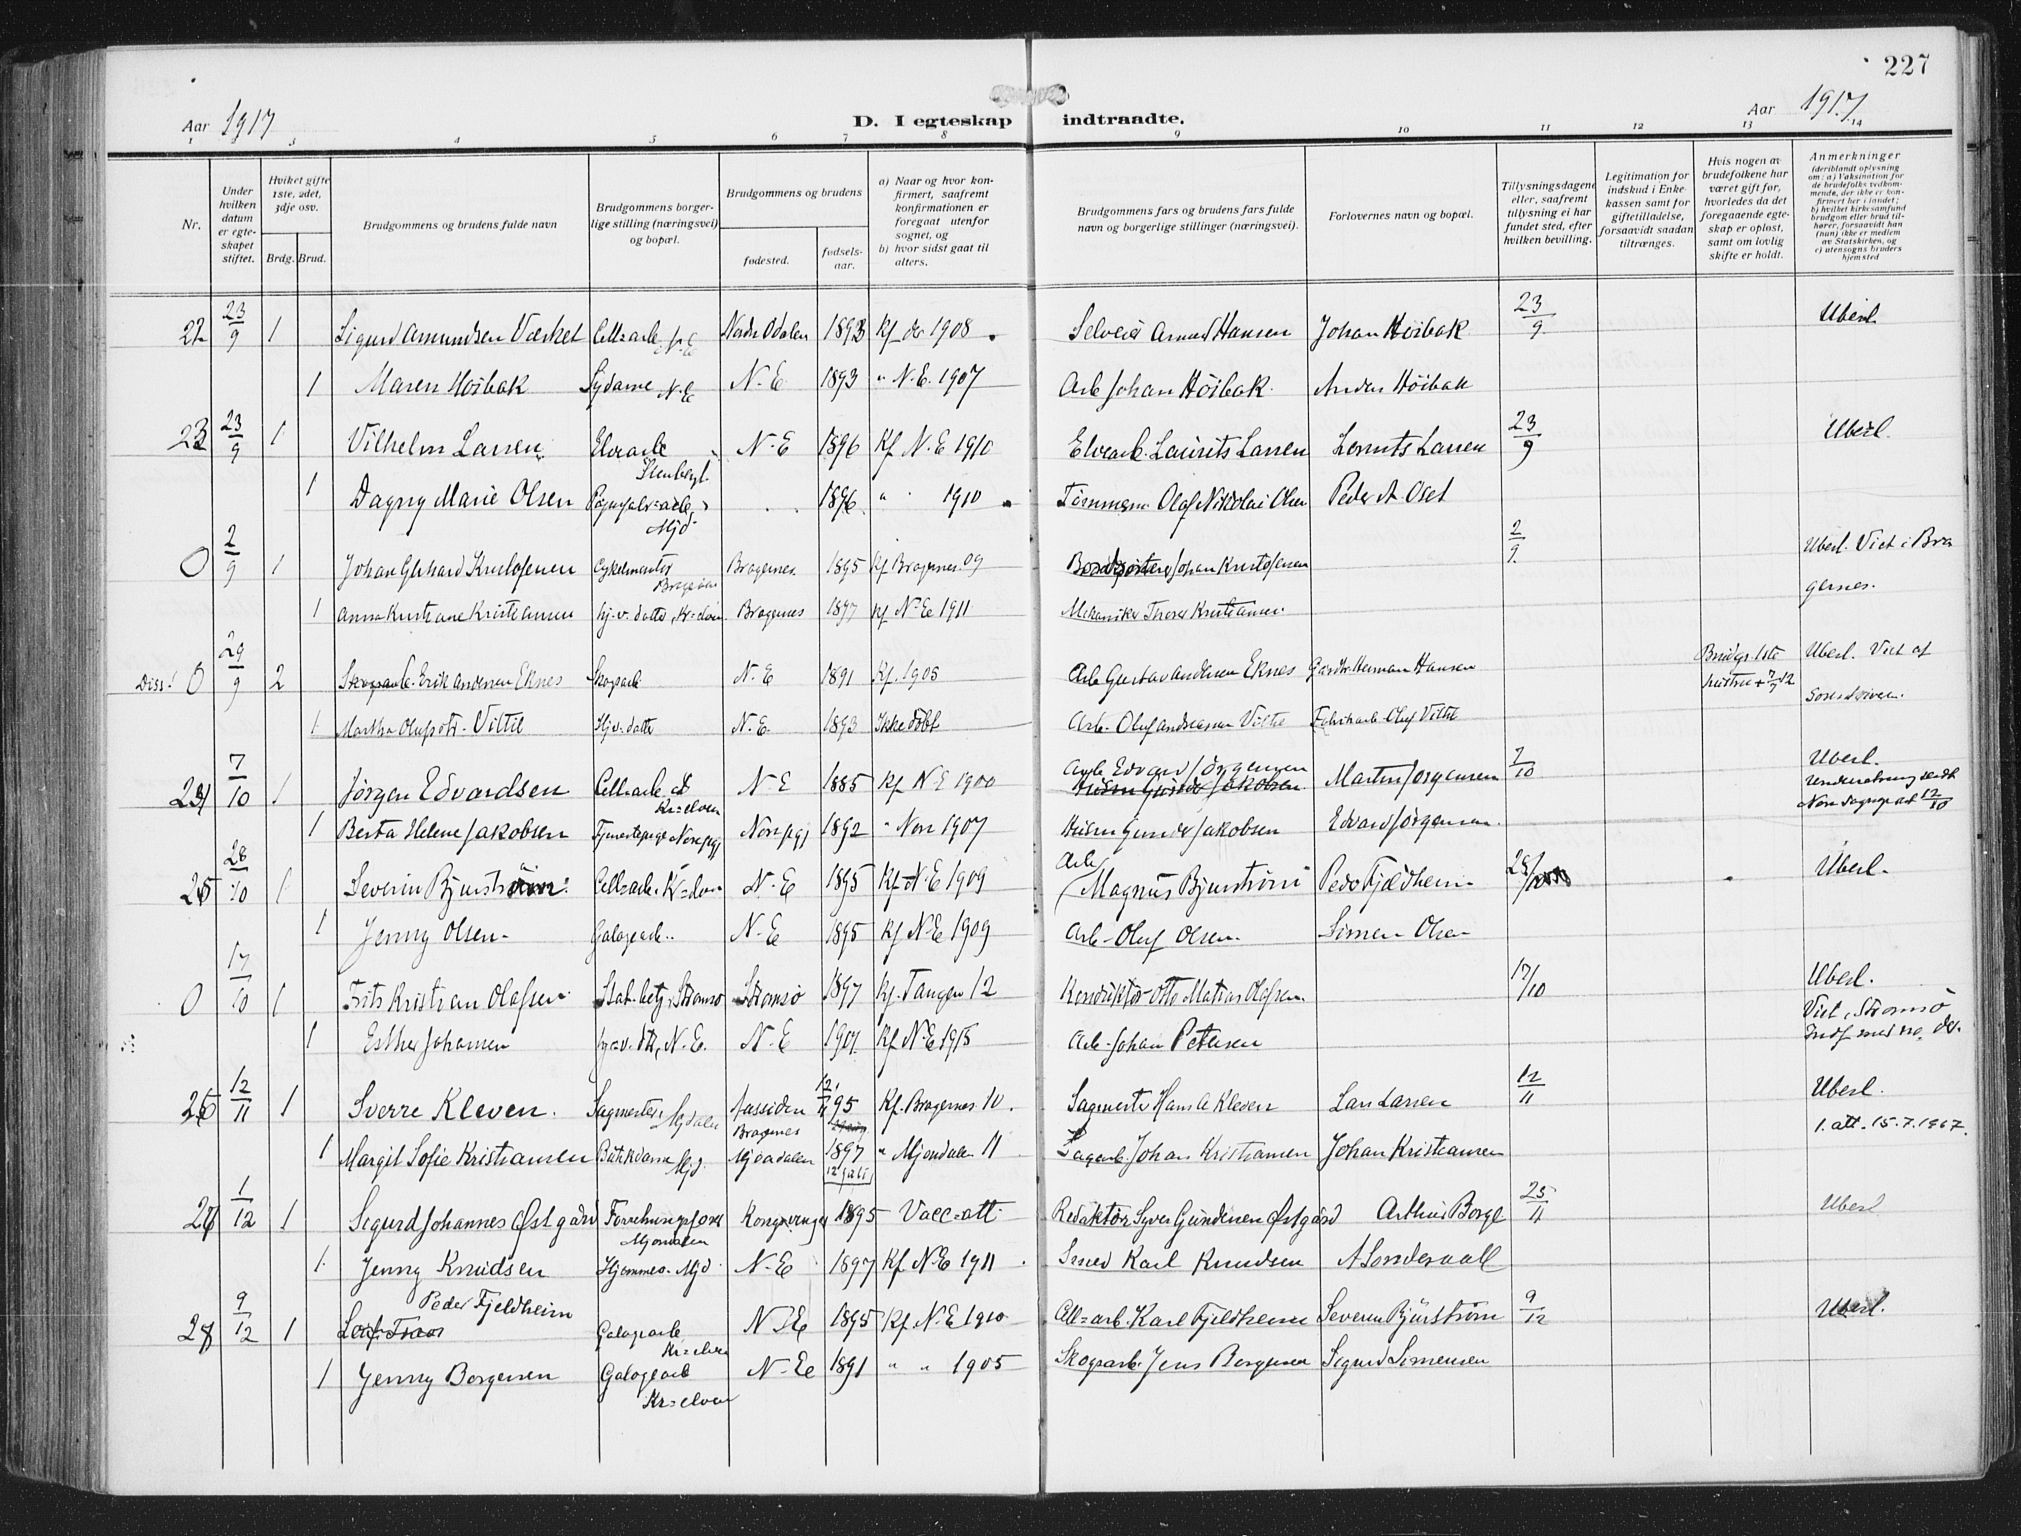 227
Aar 1917
D. I egteskap indtraadte.
Aar 1917
1 2 3 4 5 6 7 8 9 10 11 12 13 14
Nr.
Under hvilken datum er egteskapet stiftet.
Hvilket gifte 1ste, 2det, 3dje osv.
Brdg. Brud.
Brudgommens og brudens fulde navn
Brudgommens borgerlige stilling (næringsvei) og bopæl.
Brudgommens og brudens
fødested.
fødselsaar.
a) Naar og hvor konfirmert, saafremt konfirmationen er foregaat utenfor sognet, og
b) hvor sidst gaat til alters.
Brudgommens fars og brudens fars fulde navn og borgerlige stillinger (næringsvei).
Forlovernes navn og bopæl.
Tillysningsdagene eller, saafremt tillysning ei har fundet sted, efter hvilken bevilling.
Legitimation for indskud i Enkekassen samt for giftetilladelse, forsaavidt saadan tiltrænges.
Hvis nogen av brudefolkene har været gift før, hvorledes da det foregaaende egteskap er opløst, samt om lovlig skifte er holdt.
Anmerkninger
(deriblandt oplysning om: a) Vaksination for de brudefolks vedkommende, der ikke er konfirmert her i landet; b) hvilket kirkesamfund brudgom eller brud tilhører, forsaavidt han (hun) ikke er medlem av Statskirken, og c) utensogns bruders hjemsted
22 23/9 1 Sigurd Amundsen Værket Cellarb. N-E Nordre Odalen 1893 Kf do 1908 Selveier Amund Hansen Johan Høibak 23/9 Uberl.
1 Maren Høibak Sydame N-E N-E 1893 " N.E. 1907 Arb Johan Høibak Anders Høibak
23 23/9 1 Vilhelm Larsen Elvearb Stenberg N-E 1896 Kf N.E 1910 Elvearb. Laurits Larsen Laurits Larsen 23/9 Uberl.
1 Dagny Marie Olsen Mjd 1896 " 1910 Tømmerm Olaf Nikolai Olsen Peder A Oset
0 2/9 1 Johan Gerhard Kristofersen Cykelmontør Bragernes Bragernes 1895 Kf Bragernes 09 Johan Kristofersen 2/9 Uberl. Viet i Bragernes.
1 Anna Kristiane Kristiansen hj.v. datter, Kr=elven Bragernes 1897 Kf N-E 1911 Mekaniker Thorer Kristiansen
Diss! 0 29/9 2 Erik Andersen Eknes Skogarb N.E 1891 Kf. 1905 Arb Gustav Andersen Eknes Gardbr. Herman Hansen Brudgs 1ste hustru + 7/7 12 Uberl. Viet af Sorenskriver.
1 Martha Olufsdtr. Viltil Hjv. datter N.E. 1893 Ikke døbt Arb. Oluf Andreassen Viltil Fabrikarb Oluf Viltil
24 7/10 1 Jørgen Edvardsen Cellarb Kr=elven N-E 1885 Kf N E 1900 Arb Edvard Jørgensen Martin Jørgensen 7/10 Uberl.
Underretning sendt Nore sognepr at 12/10
1 Berta Helene Jakobsen Tjenestepige Nore pgj Nore pgj 1892 " Nore 1907 Husm Gunder Jakobsen Edvard Jørgensen
25 28/10 1 Severin Bjurstrøm Cellarb. Kr=elven N-E 1895 Kf N-E 1909 Arb Magnus Bjurstrøm Peder Fjeldheim 28/10 Uberl.
1 Jenny Olsen Galogearb. N-E 1895 Kf N-E 1909 Arb-Oluf Olsen Simen Olsen
0 17/10 1 Frits Kristian Olafsen Stat.betj. Strømsø Strømsø 1897 Kf. Tangen 12 Konduktør Otto Matias Olafsen 17/10 Uberl.
Viet i Strømsø
1 Esther Johansen hj.v. dtr, N.E. N-E 1901 Kf N-E 1915 Arb-Johan Petersen
26 12/11 1 Sverre Kleven Sagmester Mjdalen Aassiden Bragernes 12/11 95 Kf. Bragernes 10. Sagmester Hans A Kleven Lars Larsen 12/11 Uberl.
1. att. 15.7.1967.
1 Margit Sofie Kristiansen Butikdame Mjd. Mjøndalen 1897 " Mjøndalen 11 Sagarb. Johan Kristiansen Johan Kristiansen
27 1/12 1 Sigurd Johannes Østgård Mjøndalen Kongsvinger 1895 Vacc=att Redaktør Syver Gundersen Østgård Arthur Borge 25/11 Uberl
1 Jenny Knudsen Hjemmev. Mjd N-E 1897 Kf N-E 1911 Smed Karl Knudsen A Søndervall
28 9/12 1 Peder Fjeldheim Galogearb Kr=elven N-E 1895 Kf. N-E 1910 Cell=arb Karl Fjeldheim Severin Bjurstrøm 9/12 Uberl.
1 Jenny Borgersen Galogearb Kr=elven N-E 1891 " " 1905 Skogsarb. Jens Borgersen Sigurd Simensen